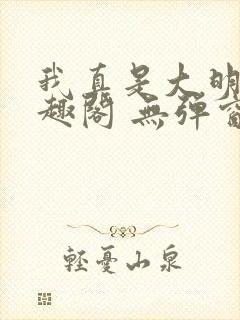 我真是大明
趣阁 無弹窗
輕憂山泉